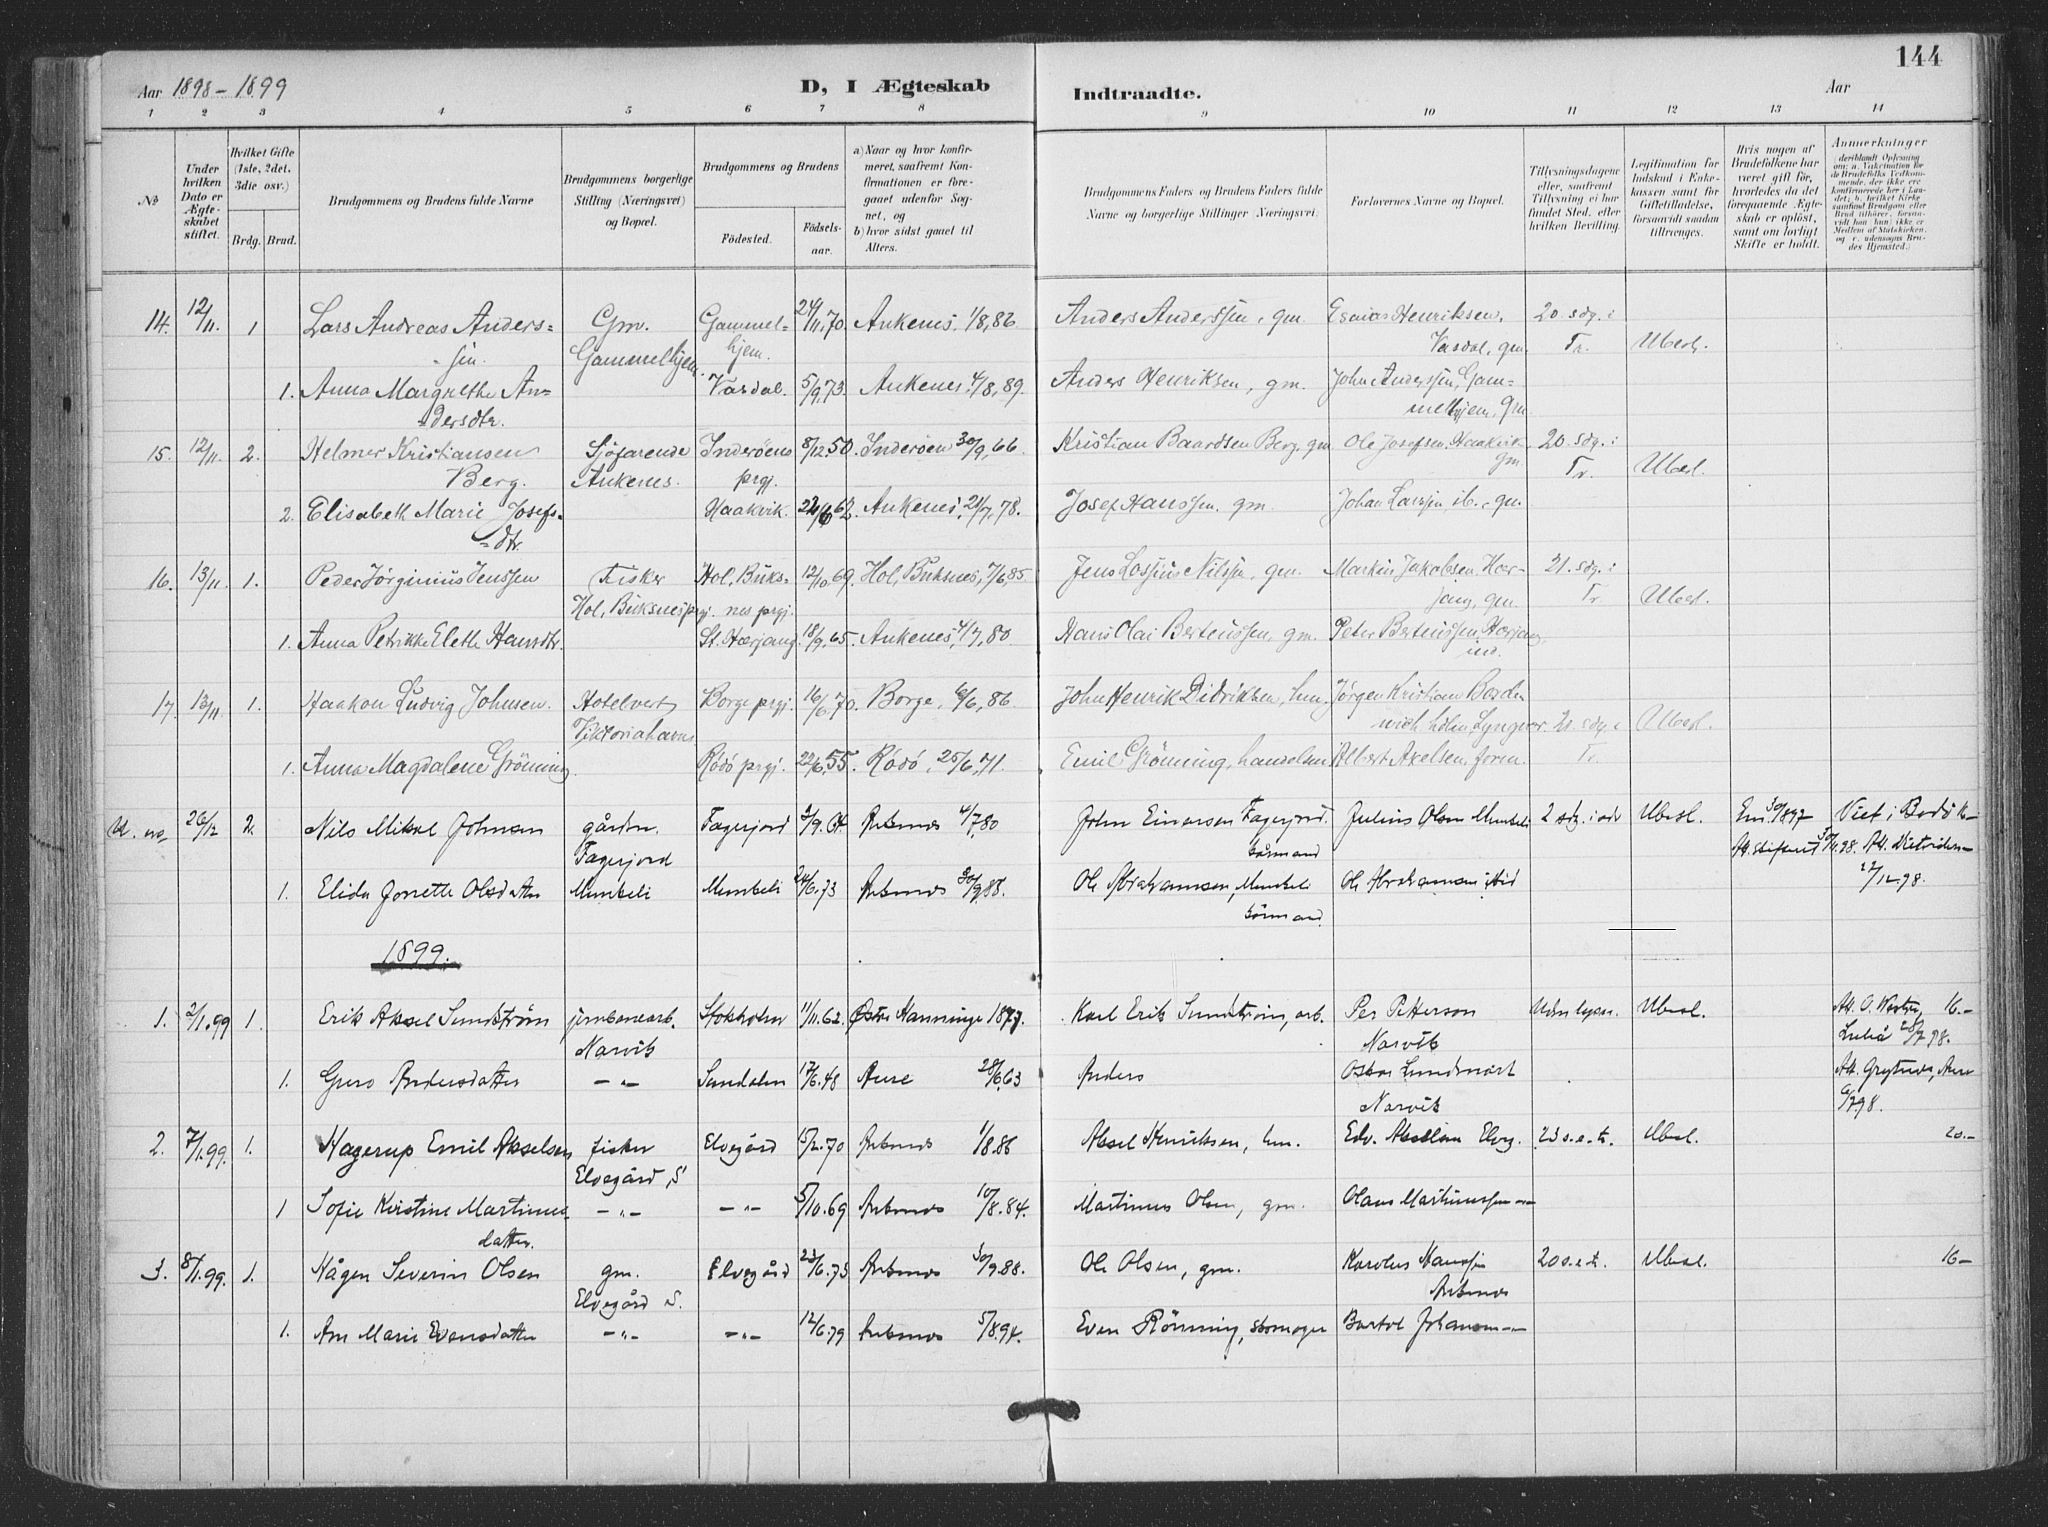 144
Aar 1898-1899
D, I Ægteskab Indtraadte.
Aar
1 2 3 4 5 6 7 8 9 10 11 12 13 14
No
Under hvilken Dato er Ægteskabet stiftet.
Hvilket Gifte (1ste, 2det, 3die osv.)
Brdg. Brud.
Brudgommens og Brudens fulde Navne
Brudgommens borgerlige Stilling (Næringsvei) og Bopæl.
Brudgommens og Brudens
Fødested. Fødselsaar.
a) Naar og hvor konfirmeret, saafremt Konfirmationen er foregaaet udenfor Sognet, og
b) hvor sidst gaaet til Alters.
Brudgommens Faders og Brudens Faders fulde Navne og borgerlige Stillinger (Næringsvei)
Forlovernes Navne og Bopæl.
Tillysningsdagene eller, saafremt Tillysning ei har fundet Sted, efter hvilken Bevilling.
Legitimation for Indskud i Enkekassen samt for Giftetilladelse, forsaavidt saadan tiltrænges.
Hvis nogen af Brudefolkene har været gift før, hvorledes da det foregaaende Ægteskab er opløst, samt om lovligt Skifte er holdt.
Anmærkninger
14. 12/11. 1 Lars Andreas Anders= Gm. Gammel= 24/11.70. Ankenes. 1/8,86 Anders Anderssen, gm. Esaias Henriksen, 20. sdg. i
sen. Gammelhjem. hjem. Vasdal, gm. Tr. Ubesl.
1. Anna Margrethe An= Vasdal. 5/9.73. Ankenes. 4/8,89. Anders Henriksen, gm. John Anderssen, Gam=
dersdtr. melhjem, Gm.
15. 12/11. 2. Helmer Kristiansen Sjøfarende Inderøens 8/12.50. Inderøen 30/9,66. Kristian Baardsen Berg, gm. Ole Josefsen, Haakvik 20. sdg. i
Berg. Ankenes. prgj. gm. Tr. Ubesl.
2. Elisabeth Marie Josefs= Haakvik. 62. Ankenes, 21/7,78. Josef Hanssen, gm. Johan Larssen, ib., gm.
dtr.
16. 13/11. 1. Peder Jørginius Jenssen Fisker Hol, Buks= 12/10.69. Hol, Buksnes, 7/6,85 Jens Nilssen, gm. Markus Jakobsen, Her= 21. sdg. i
Hol, Buksnes prgj. nes prgj. jang, gm. Tr. Ubesl.
1. Anna Petrikke Eleth Hansdtr. St. Herjang. 18/9.65. Ankenes, 4/7,80 Hans Olai Berteussen, gm. Peter Berteussen, Herjang,
ind.
17. 13/11. 1. Haakon Ludvig Johnsen. Hotelvert Borge prgj. 16/6.70. Borge, 6/6,86 John Henrik Didriksen, hm. Jørgen Kristian
Viktoriahavn Lyngvær. 21. sdg. i Ubesl.
1. Anna Magdalene Grönning. Rödö prgj. 22/6.55. Rödö, 25/6,71. Emil Grönning, handelsm. Albert Akselsen, Tr.
26/12 2. Nils Mikal Johnsen gårdm. Fagerjord 2/9.64 Ankenes 4/7.80 John Einarsen Fagerjord. Julius Olsen Munkeli Ubesl. Em. Viet i Bodö
Fagerjord Att. Att.
1. Elida Jonette Olsdatter Munkeli Munkeli 24/6.73 Ankenes 30/9.88. Ole Abrahamsen, Munkeli Ole Abrahamsen 22/12.98.
1899.
1. 2/1.99 1. Erik Aksel Sundström jernbanearb. Stokholm 11/11.62. Østre Hanninge 1877. Karl Erik Sundström, arb. Per Petterson Ubesl. Att. 16.-
Narvik Narvik Luleå 98.
1. Guro Andersdatter -"- Sundalen 17/6.48 Aure 28/6.63 Anders Oskar Lundmark Att. Grytnes, Aure
Narvik 6/7 98.
2. 7/1.99. 1. Hagerup Emil Akselsen fisker Elvegård 70 Ankenes 1/8.86 Aksel Henriksen, hm. Edv. Akselsen Elvg. 23 s.e.tr. Ubesl. 20.-
Elvegård, S
1 Sofie Kirstine Martinus- -"- -"- 5/10.69 Ankenes 10/8.84. Martinus Olsen, gm. Olaus Martinussen -"-
datter.
3. 8/1.99. 1. Hågen Severin Olsen gm. Elvegård 23/6.73 Ankenes 30/9.88. Ole Olsen, gm. Karolus Hanssen 20 s.e.tr. Ubesl. 16-
Elvegård S. Ankenes
1. Ane Marie Evensdatter -"- -"- 12/6.79 Ankenes 5/8.94. Even Rönning, skomager Bertol Johansen -"-